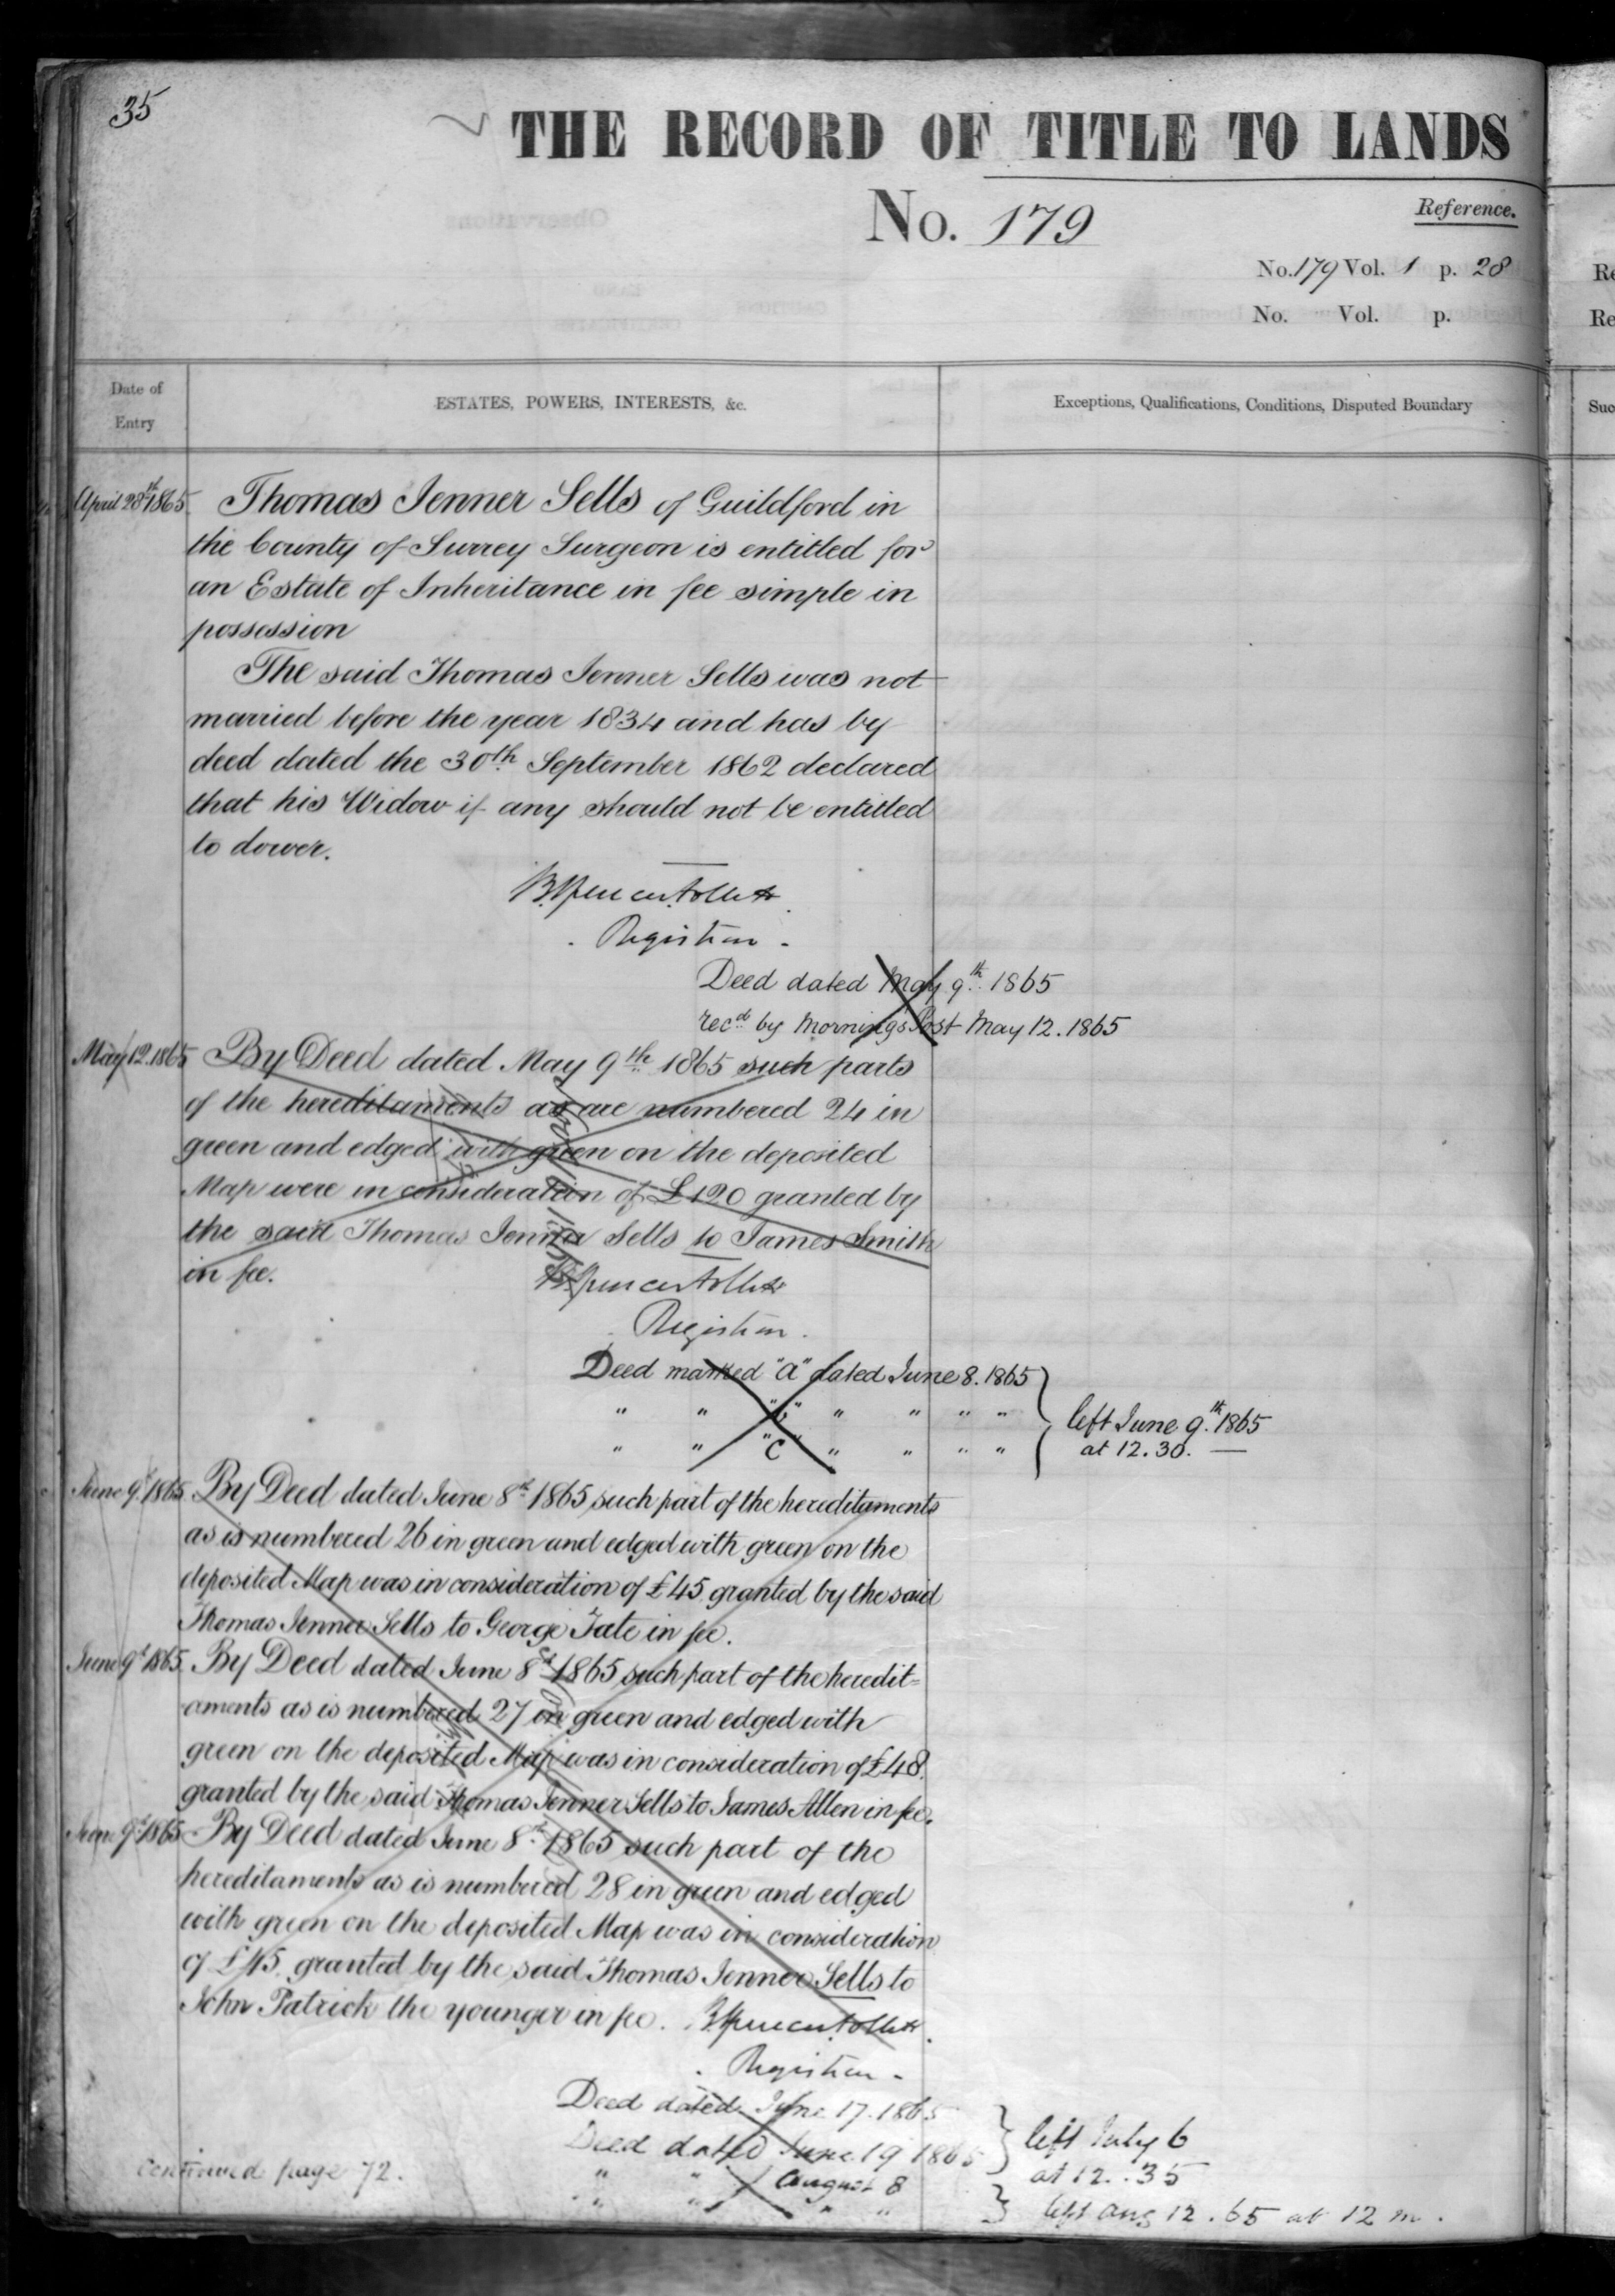 35
THE RECORD OF TITLE TO LANDS
No. 179
Reference.
No. 179 Vol. 1 p. 28
No. Vol. p.
Date of
Entry
ESTATES, POWERS, INTERESTS, &c.
Exceptions, Qualifications, Conditions, Disputed Boundary
April 28th 1865 Thomas Jenner Sells of Guildford in
the County of Surrey Surgeon is entitled for
an Estate of Inheritance in fee simple in
possession
The said Thomas Jenner Sells was not
married before the year 1834 and has by
deed dated the 30th September 1862 declared
that his Widow if any should not be entitled
to dower.
Registrar
Deed dated May 9th 1865
recd by Morning's Post May 12. 1865
May 12. 1865 By Deed dated May 9th 1865 such parts
of the hereditaments as are numbered 24 in
green and edged with green on the deposited
Map were in consideration of £120 granted by
the said Thomas Jenner Sells to James Smith
in fee.
Registrar.
Deed marked "A" dated June 8. 1865
" " " " " " "
" " "C" " " " "
left June 9th 1865
at 12.30.
June 9th 1865 By Deed dated June 8th 1865 such part of the hereditaments
as is numbered 26 in green and edged with green on the
deposited Map was in consideration of £45 granted by the said
Thomas Jenner Sells to George Tate in fee.
June 9th 1865 By Deed dated June 8th 1865 such part of the heredit=
aments as is numbered 27 in green and edged with
green on the deposited Map was in consideration of £48
granted by the said Thomas Jenner Sells to James Allen in fee.
June 9th 1865 By Deed dated June 8th 1865 such part of the
hereditaments as is numbered 28 in green and edged
with green on the deposited Map was in consideration
of £45 granted by the said Thomas Jenner Sells to
John Patrick the younger in fee.
Registrar
Deed dated June 17. 1865
Deed dated June 19 1865
left July 6
at 12..35
" " August 8
" " " "
left Aug 12. 65 at 12 m.
continued page 72.
Re
Re
Suc